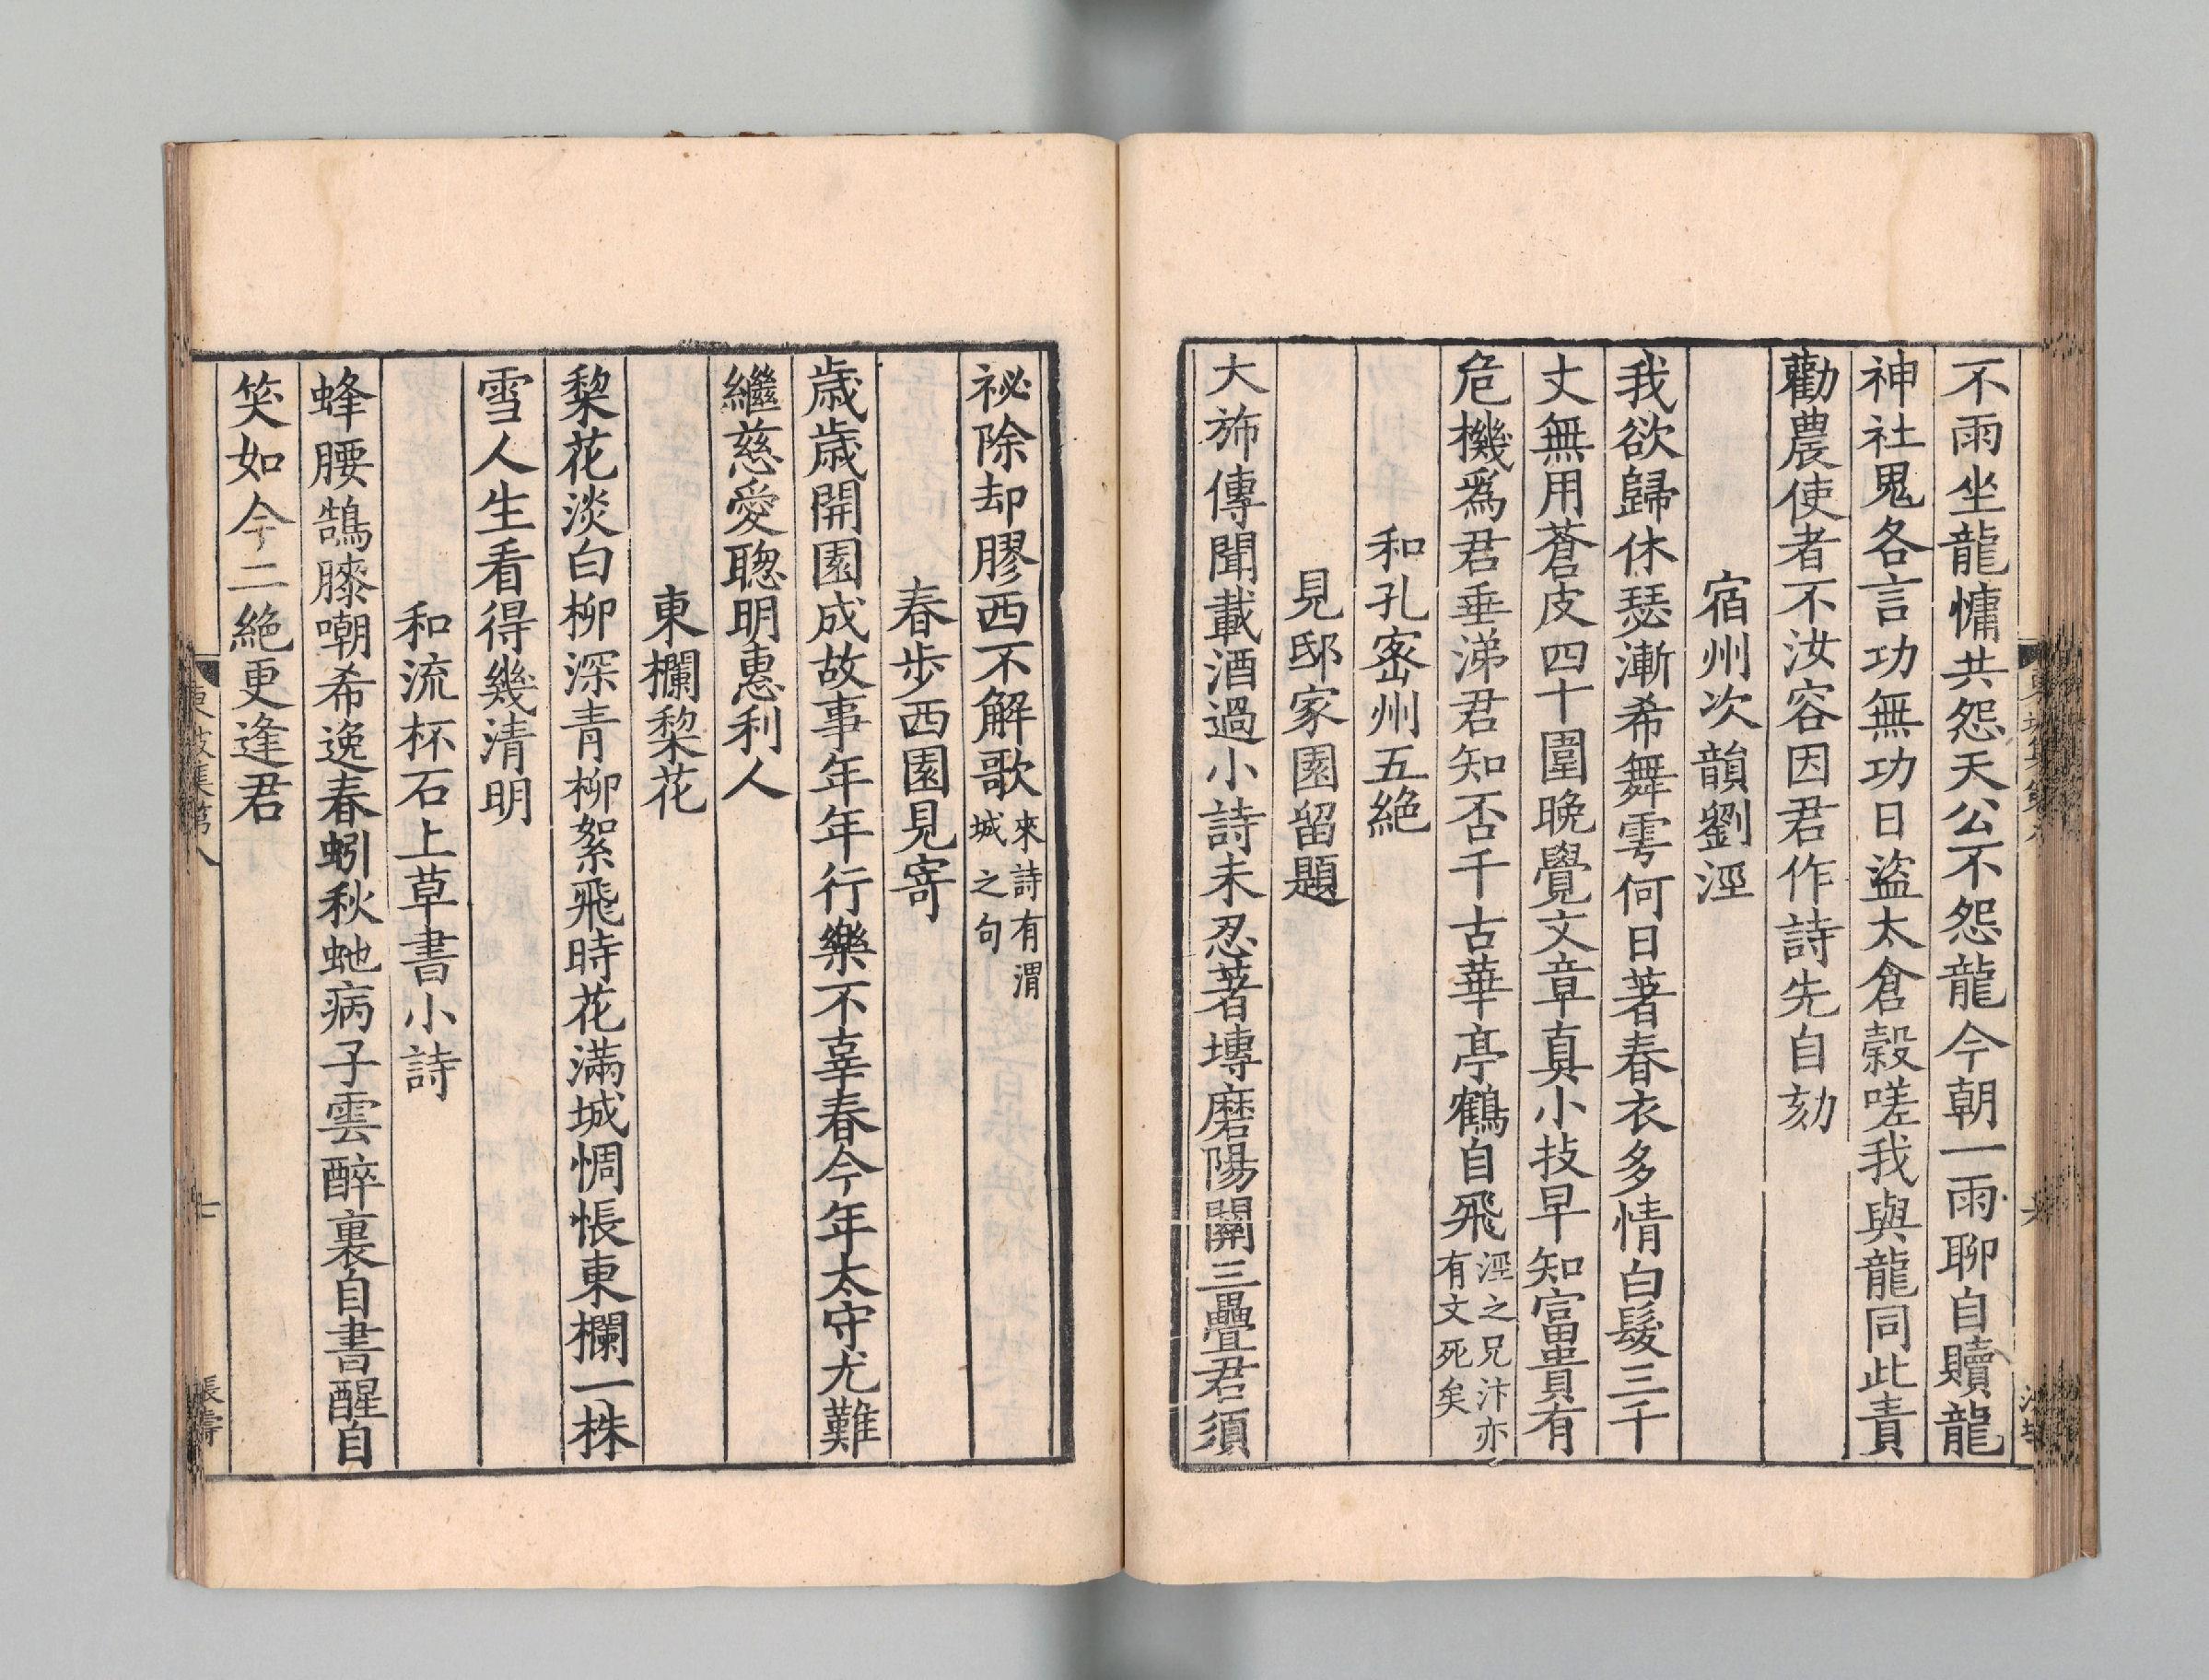 不雨坐龍慵共怨天公不怨龍今朝一雨聊自贖龍
神社鬼各言功無功日盜太倉穀嗟我與龍同此責
勸農使者不汝容因君作詩先自劾
宿州次韻劉涇
我欲歸休瑟漸希舞雩何日著春衣多情白髮三千
丈無用蒼皮四十圍晚覺文章真小技早知富貴有
危機爲君垂涕君知否千古華亭鶴自飛涇之兄汴亦有文死矣
和孔宻州五絶
見邸家園留題
大斾傳聞載酒過小詩未忍著塼磨陽關三疊君須
祕除却膠西不解歌來詩有渭城之句
春步西園見寄
歲歲開園成故事年年行樂不辜春今年太守尤難
繼慈愛聰明惠利人
東欄棃花
棃花淡白柳深青柳絮飛時花滿城惆悵東欄一株
雪人生看得幾清明
和流杯石上草書小詩
蜂腰鵠膝嘲希逸春蚓秋虵病子雲醉裏自書醒自
笑如今二絶更逢君
東坡集第八
七
張壽